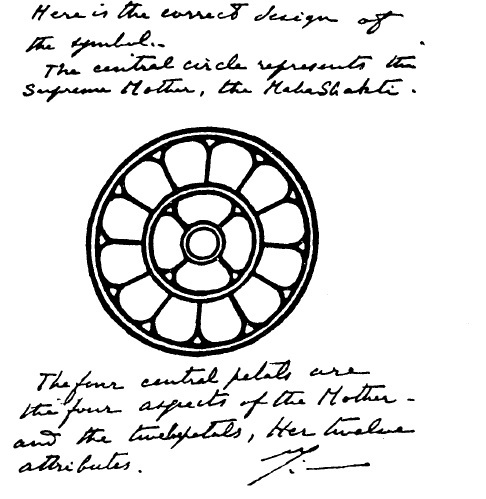 Here is the correct design of
the symbol.
The central circle represents the
Supreme Mother, the MahaShakti.
The four central petals are
the four aspects of the Mother -
and the twelve petals, Her twelve
attributes.